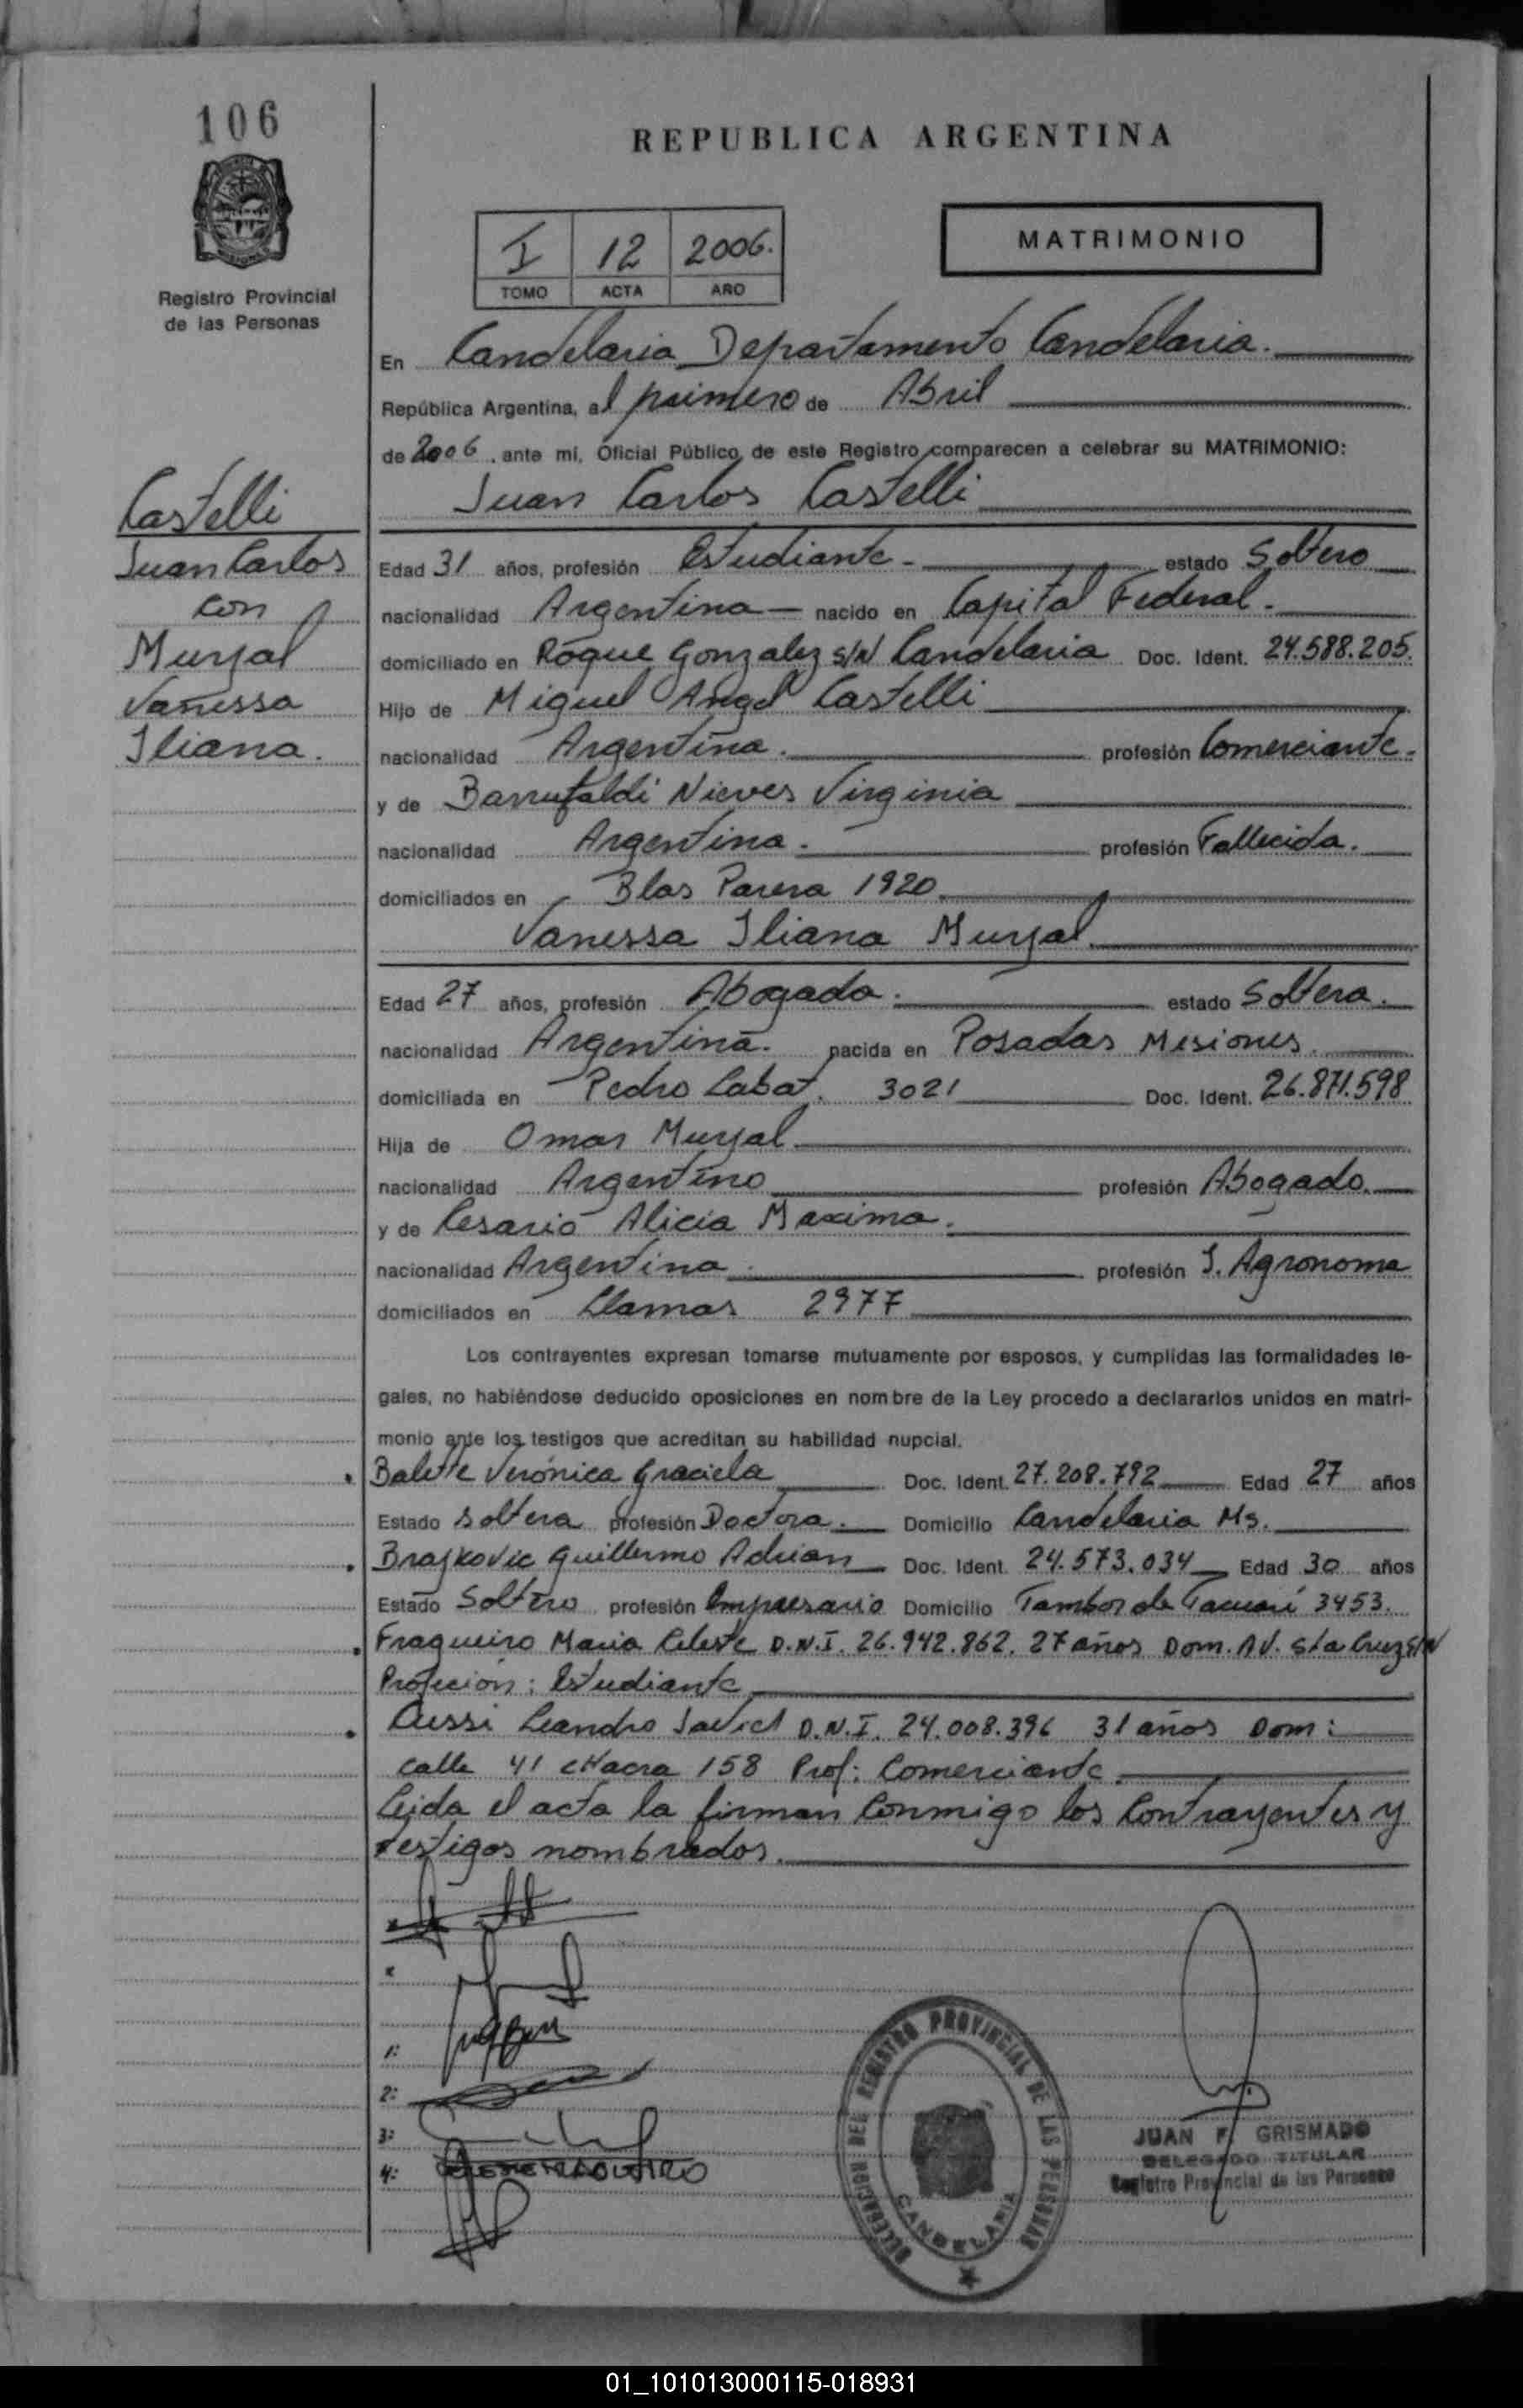 106
REPUBLICA ARGENTINA
Registro Provincial
de las Personas
I 12 2006.
TOMO ACTA AÑO
MATRIMONIO
En Candelaria Departamento Candelaria.
República Argentina, al primero de Abril
de 2006, ante mi, Oficial Público de este Registro comparecen a celebrar su MATRIMONIO:
Juan Carlos Castelli
Castelli
Juan Carlos
con
Muryal
Vanessa
Iliana.
Edad 31 años, profesión Estudiante - estado Soltero
nacionalidad Argentina - nacido en Capital Federal.
domiciliado en Roque Gonzalez S/N Candelaria Doc. Ident. 24.588.205.
Hijo de Miguel Angel Castelli
nacionalidad Argentina. profesión Comerciante.
y de Barrufaldi Nieves Virginia
nacionalidad Argentina. profesión Fallecida.
domiciliados en Blas Parera 1920
Vanessa Iliana Muryal
Edad 27 años, profesión Abogada. estado Soltera.
nacionalidad Argentina. nacida en Posadas Misiones.
domiciliada en Pedro Labat. 3021 Doc. Ident. 26.871.598
Hija de Omar Muryal
nacionalidad Argentino profesión Abogado.
y de Cesario Alicia Maxima.
nacionalidad Argentina profesión I. Agronoma
domiciliados en Llamas 2977
Los contrayentes expresan tomarse mutuamente por esposos, y cumplidas las formalidades le-
gales, no habiéndose deducido oposiciones en nombre de la Ley procedo a declararlos unidos en matri-
monio ante los testigos que acreditan su habilidad nupcial.
Verónica Graciela Doc. Ident. 27.208.792 Edad 27 años
Estado Soltera profesión Doctora. Domicilio Candelaria Ms.
Brajkovic Guillermo Adrian Doc. Ident. 24.573.034 Edad 30 años
Estado Soltero profesión Empresario Domicilio Tambor de Tacuarí 3453.
Fragueiro Maria Celeste D.N.I. 26.942.862. 27 años Dom. AV. Sta Cruz S/N
Profecion: Estudiante
Leandro Javiel D.N.I. 24.008.396 31 años Dom:
calle 41 chacra 158 Prof: Comerciante.
Leida el acta la firman Conmigo los Contrayentes y
testigos nombrados.
1:
2:
3:
4:
DELEGACION DEL REGISTRO PROVINCIAL DE LAS PERSONAS
CANDELARIA
JUAN F. GRISMADO
DELEGADO TITULAR
Registro Provincial de las Personas
01_101013000115-018931